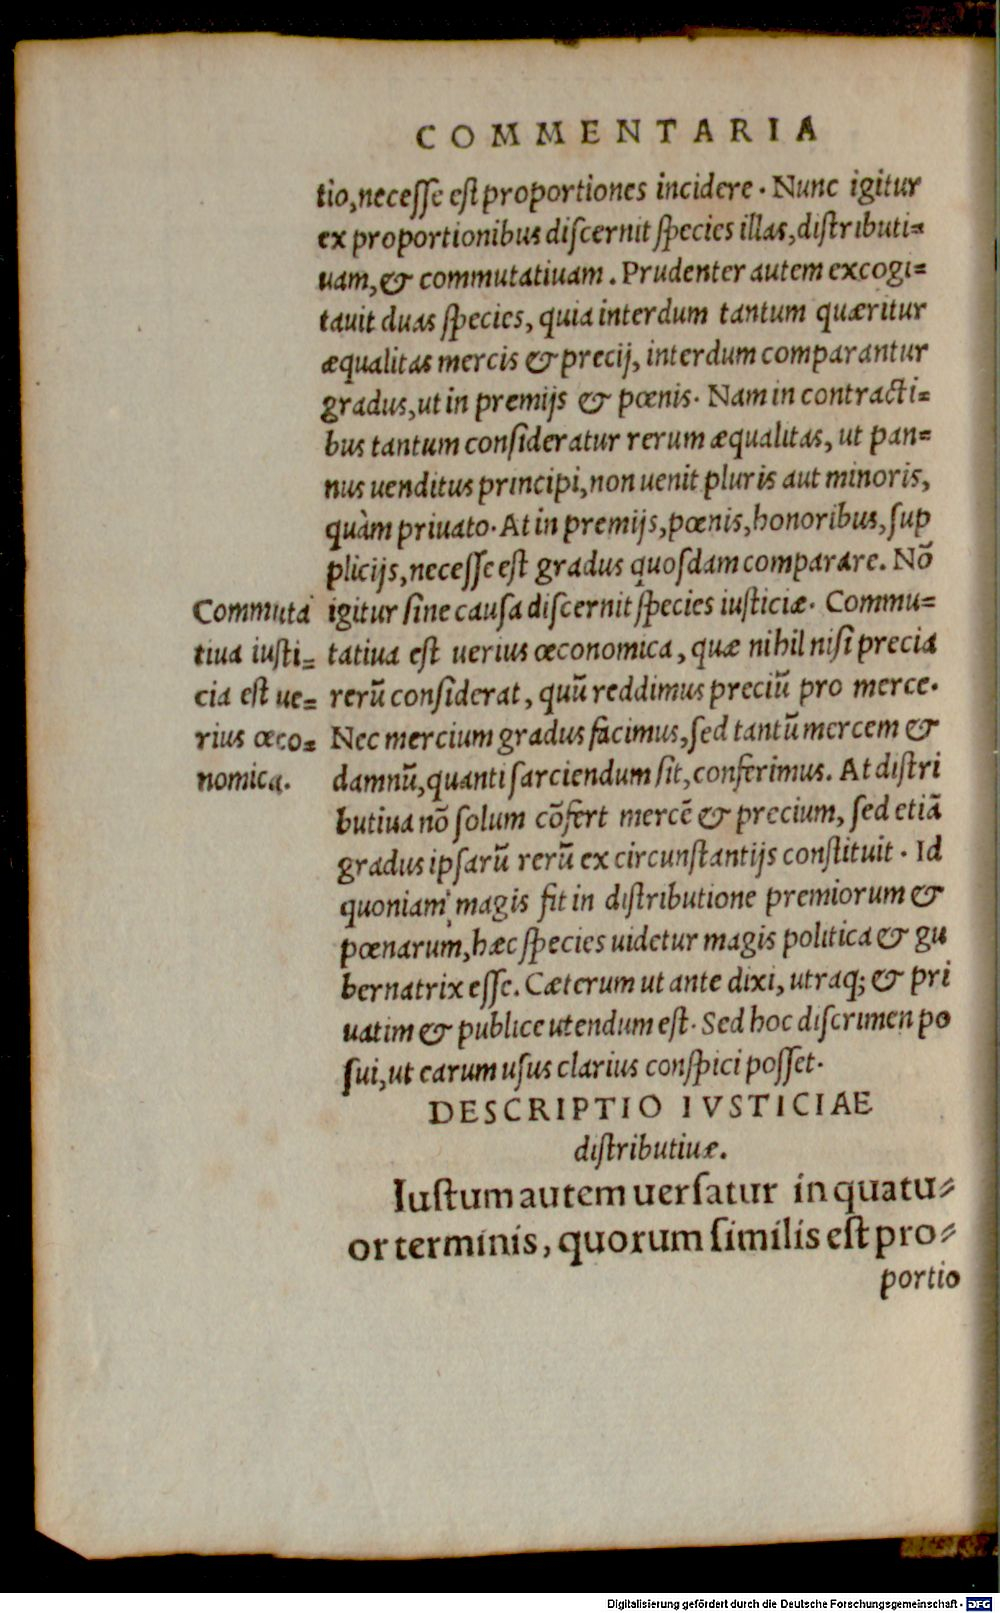 COMMENTARIA
tio, necesse est proportiones incidere. Nunc igitur
ex proportionibus discernit species illas, distributi=
uam, & commutatiuam. Prudenter autem excogi=
tauit duas species, quia interdum tantum quæritur
æqualitas mercis & precij, interdum comparantur
gradus, ut in premijs & pœnis. Nam in contracti=
bus tantum consideratur rerum æqualitas, ut pan=
nus uenditus principi, non uenit pluris aut minoris,
quàm priuato. At in premijs, pœnis, honoribus, sup
plicijs, necesse est gradus quosdam comparare. Nō
igitur sine causa discernit species iusticiæ. Commu=
tatiua est uerius œconomica, quæ nihil nisi precia
rerū considerat, quū reddimus preciū pro merce.
Nec mercium gradus facimus, sed tantū mercem &
damnū, quanti sarciendum sit, conferimus. At distri
butiua nō solum cōfert mercē & precium, sed etiā
gradus ipsarū rerū ex circunstantijs constituit. Id
quoniam magis fit in distributione premiorum &
pœnarum, hæc species uidetur magis politica & gu
bernatrix esse. Cæterum ut ante dixi, utraq; & pri
uatim & publice utendum est. Sed hoc discrimen po
sui, ut earum usus clarius conspici posset.
Commuta
tiua iusti=
cia est ue=
rius œco=
nomica.
DESCRIPTIO IVSTICIAE
distributiuæ.
Iustum autem uersatur in quatu=
or terminis, quorum similis est pro=
portio
Digitalisierung gefördert durch die Deutsche Forschungsgemeinschaft - DFG